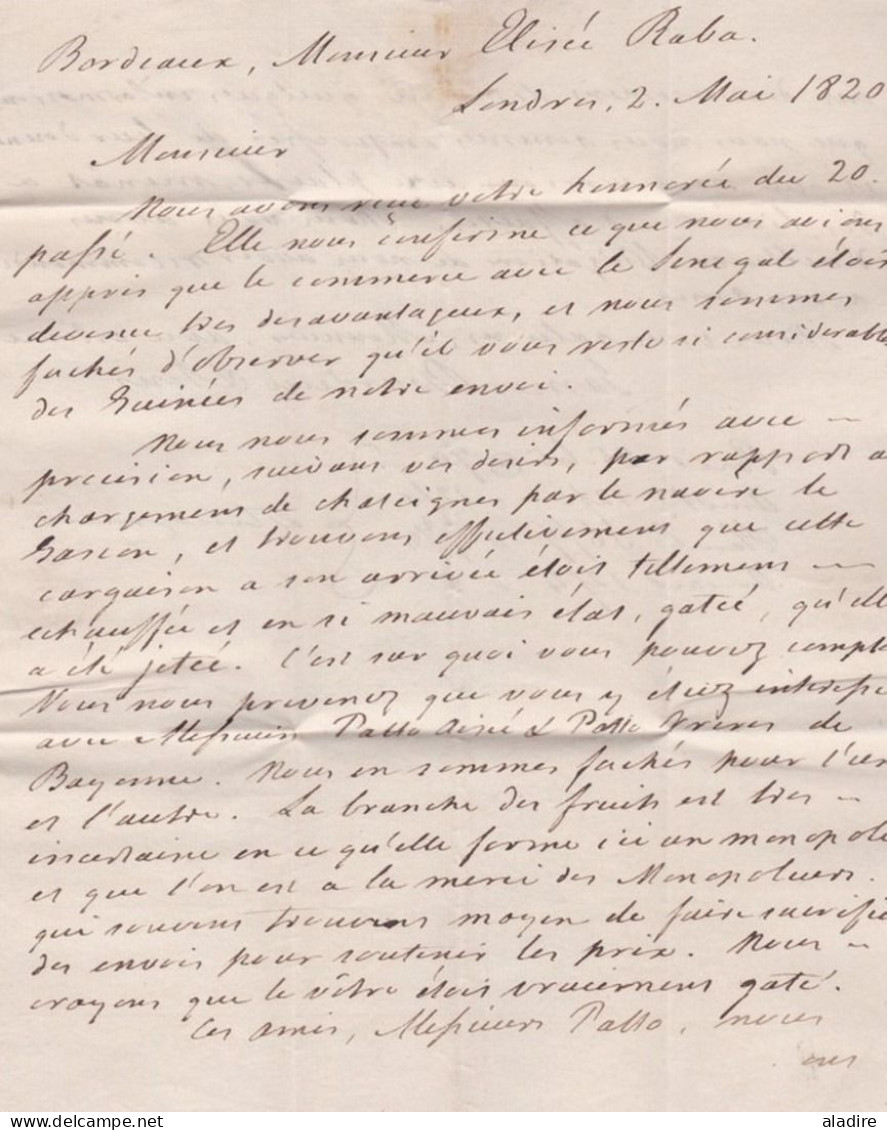 Bordeaux, Monsieur Elisée Raba.
Londres, 2. Mai 1820
Monsieur
Nous avons reçu votre honnorée du 20.
passé. Elle nous confirme ce que nous avions
appris que le commerce avec le Senegal étois
devenu tres desavantageux, et nous sommes
fachés d'observer qu'il vous reste si considerable
des Guinées de notre envoi.
Nous nous sommes informés avec
precision, suivans vos desirs, par rapport a
chargemens de chataignes par le navire le
Gascon, et trouvons effectivement que cette
cargaison a son arrivée étois tellemens
echauffée et en si mauvais état, gatée, qu'elle
a été jetée. C'est sur quoi vous pouvez compte
Vous nous prevenez que vous y étiez interesse
avec Messieurs Patto Ainé & Patto Freres de
Bayonne. Nous en sommes fachés pour l'un
et l'autre. La branche des fruits est tres
incertaine en ce qu'elle forme ici un monopole
et que l'on est a la merci des Monopoleurs.
qui souvens trouvens moyen de faire sacrifie
des envois pour soutenir les prix. Nous
croyons que le vôtre étois vraiemens gaté.
Ces amis, Messieurs Patto, nous
ons
aladire